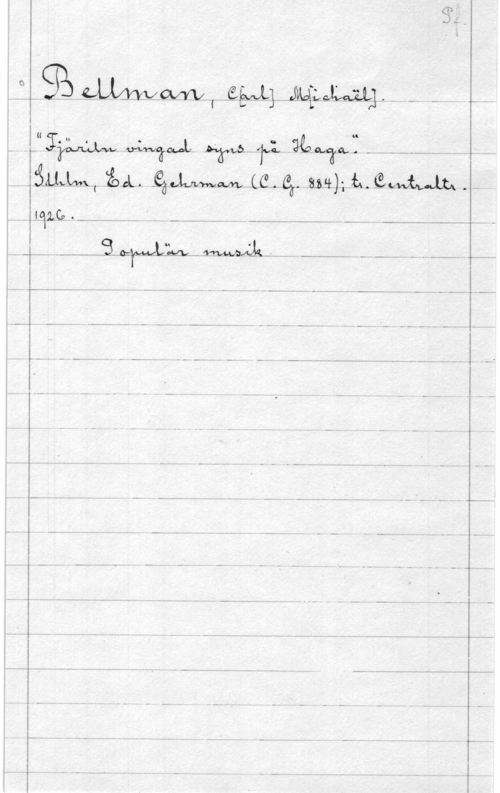 Pf.
Bellman, C[arl] M[ichaël].
"Fjäriln vingad syns på Haga."
Sthlm, Ed. Gehrman (C. G. 884); tr. Centraltr.
1926.
Populär musik